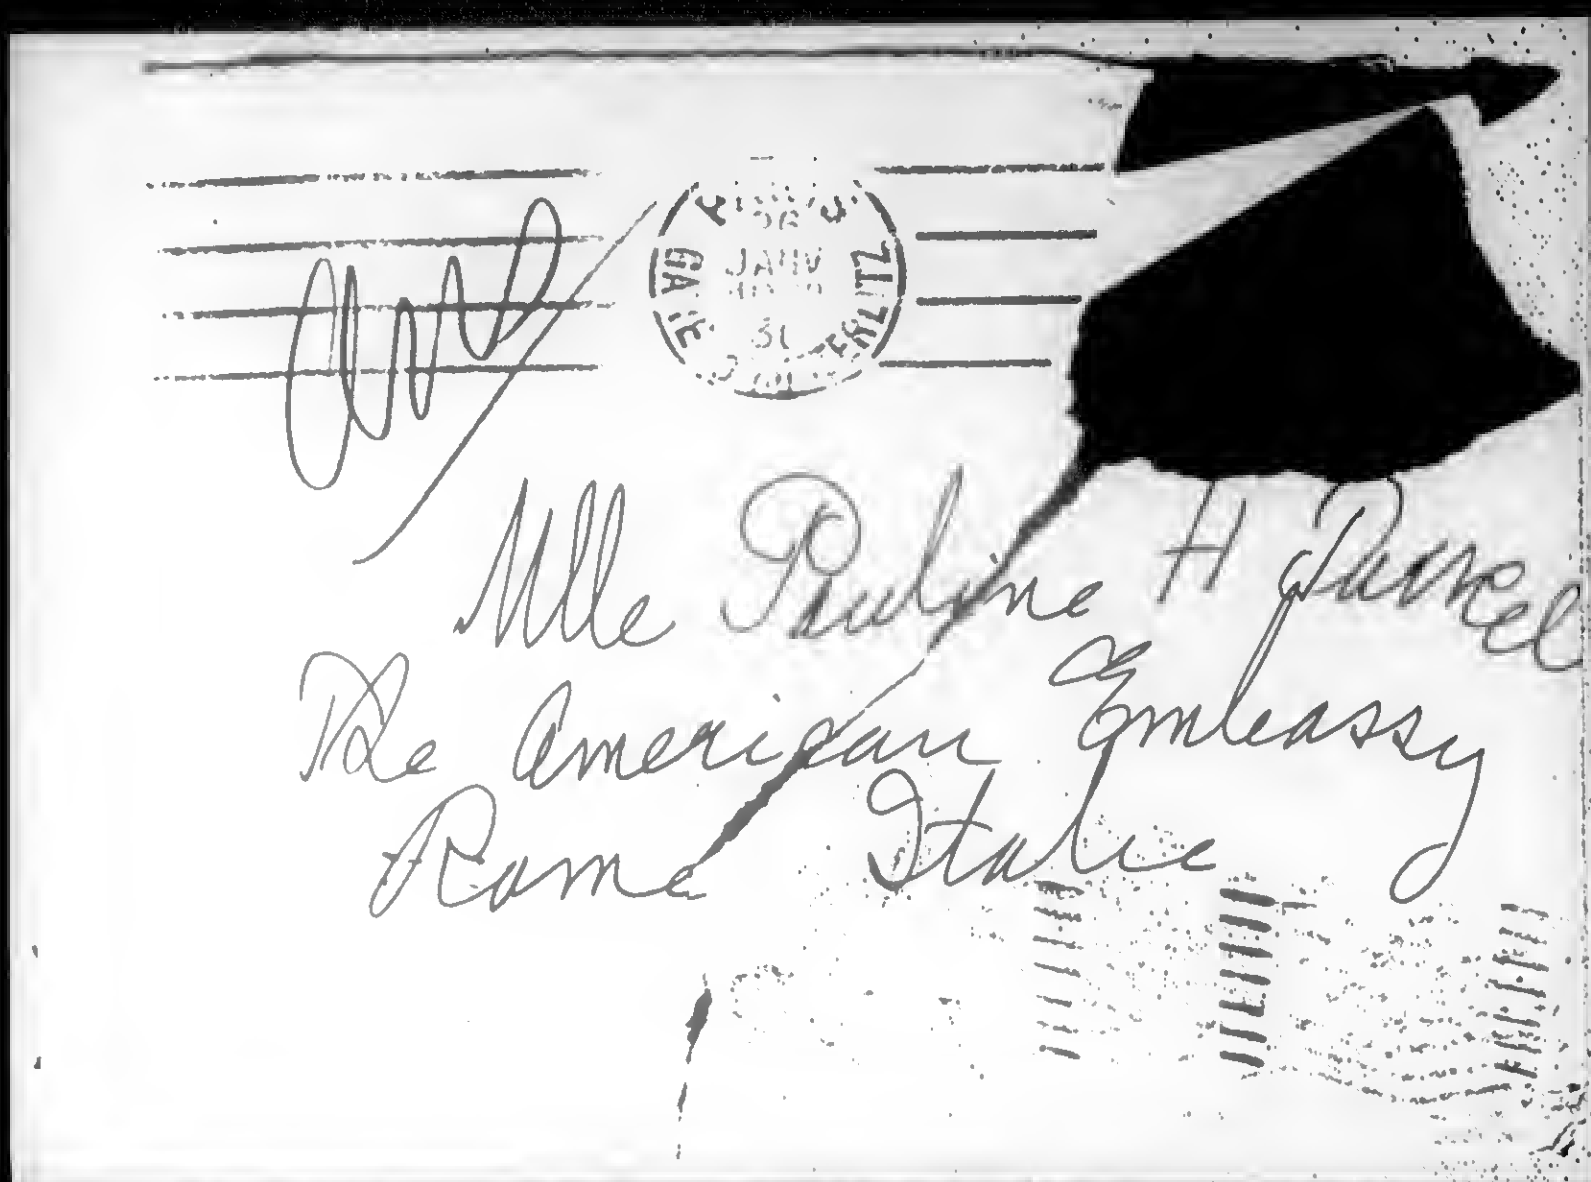 26
JANV
31
GARE D'AUSTERLITZ
Mlle Pauline H
The American Embassy
Rome Italie